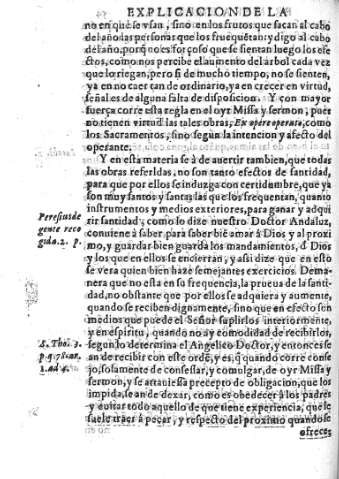 EXPLICACION DE LA
no en q̃ se vsan, sino en los frutos que sacan al cabo
del año las personas que los frequẽtan: y digo al cabo
del año, porq̃ no es forçoso que se sientan luego los efe
ctos, como nos percibe el aumento del árbol cada vez
que lo riegan, pero si de mucho tiempo, no se sienten,
ya en no caer tan de ordinario, ya en crecer en virtud,
señal es de alguna falta de disposicion. Y con mayor
fuerça corre esta regla en el oyr Missa y sermon, pues
no tienen virtud las tales obras, Ex opere operato, como
los Sacramentos, sino según la intencion y afecto del
operante.
Y en esta materia se à de auertir tambien, que todas
las obras referidas, no son tanto efectos de santidad,
para que por ellos se induzga con certidumbre, que ya
son muy santos y santas las que los frequentan, quanto
instrumentos y medios exteriores, para ganar y adqui
rir santidad, como lo dize nuestro Doctor Andaluz,
conuiene à saber para saber biẽ amar à Dios y al proxi
mo, y guardar bien guarda los mandamientos, d̃ Dios
y los que en ellos se encierran, y assi dize que en esto
se vera quien bien haze semejantes exercicios. Dema
nera que no esta en su frequencia, la prueua de la santi-
dad, no obstante que por ellos se adquiera y aumente,
quando se reciben dignamente, sino que en efecto son
medios que puede el Señor suplirlos interiormente,
y en espiritu, quando no ay comodidad de recibirlos,
segun lo determina el Angelico Doctor, y entonces se
an de recibir con este ordẽ, y es, q̃ quando corre conse
jo, solamente de confessar, y comulgar, de oyr Missa y
sermon, y se atrauiessa precepto de obligacion, que los
impida, se an de dexar, como es obedecer à los padres
y euitar todo aquello de que tiene experiencia, que se
suele traer à pecar, y respecto del proximo quando se
ofrece;
Peresius de
gente reco
gida. 2. p.
S. Tho. 3.
p. q. 78. ar.
3. ad 4.